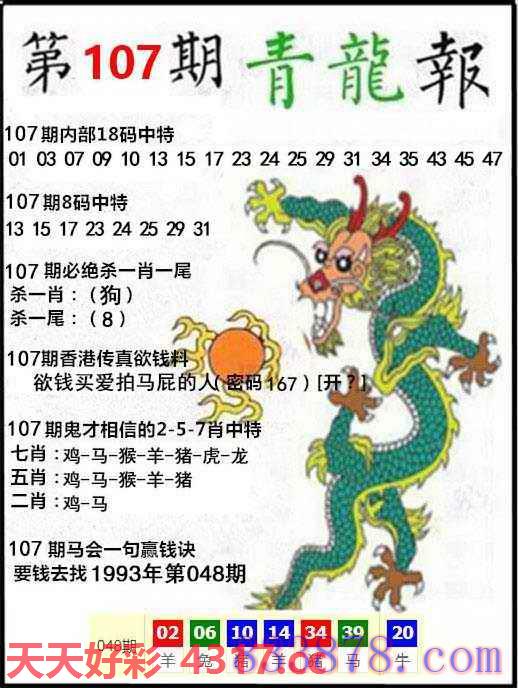 第107期青龍報
107期内部18码中特
01 03 07 09 10 13 15 17 23 24 25 29 31 34 35 43 45 47
107期8码中特
13 15 17 23 24 25 29 31
107期必绝杀一肖一尾
杀一肖：（狗）
杀一尾：（8）
107期香港传真欲钱料
欲钱买爱拍马屁的人（密码167）[开？]
107期鬼才相信的2-5-7肖中特
七肖：鸡-马-猴-羊-猪-虎-龙
五肖：鸡-马-猴-羊-猪
二肖：鸡-马
107期马会一句赢钱诀
要钱去找1993年第048期
048期 02 06 10 14 34 39 20
羊 兔 猪 羊 猪 马 牛
天天好彩 4317.cc
878.com